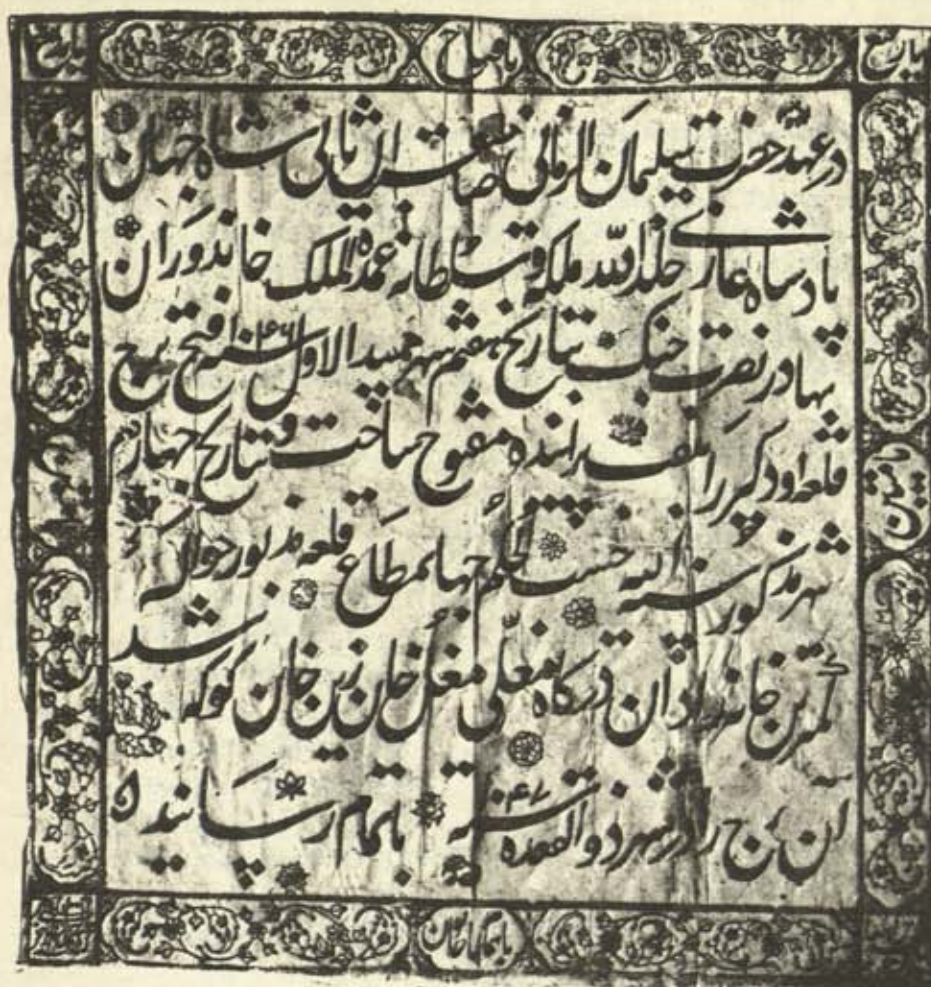 یا فتاح
در عهد حضرت سلیمان الزمانی صاحبقران ثانی شاه جهان
پادشاه غازی خلد الله ملکه و سلطانه عمدة الملک خاندوران
بهادر نصرت جنک بتاریخ هفتم شهر الاول سنه فتح برج
قلعه اودکیر را پرانیده مفتوح ساخت و بتاریخ چهارم
شهر مذکور سنه الیه حسب الحکم جهانمطاع قلعه مذبور حواله
کمترین خانه زادان درکاه معلی مغل خان زین خان کوکه شد
آن برج را در شهر ذوالقعده سنه باتمام رسانیده
یا متین